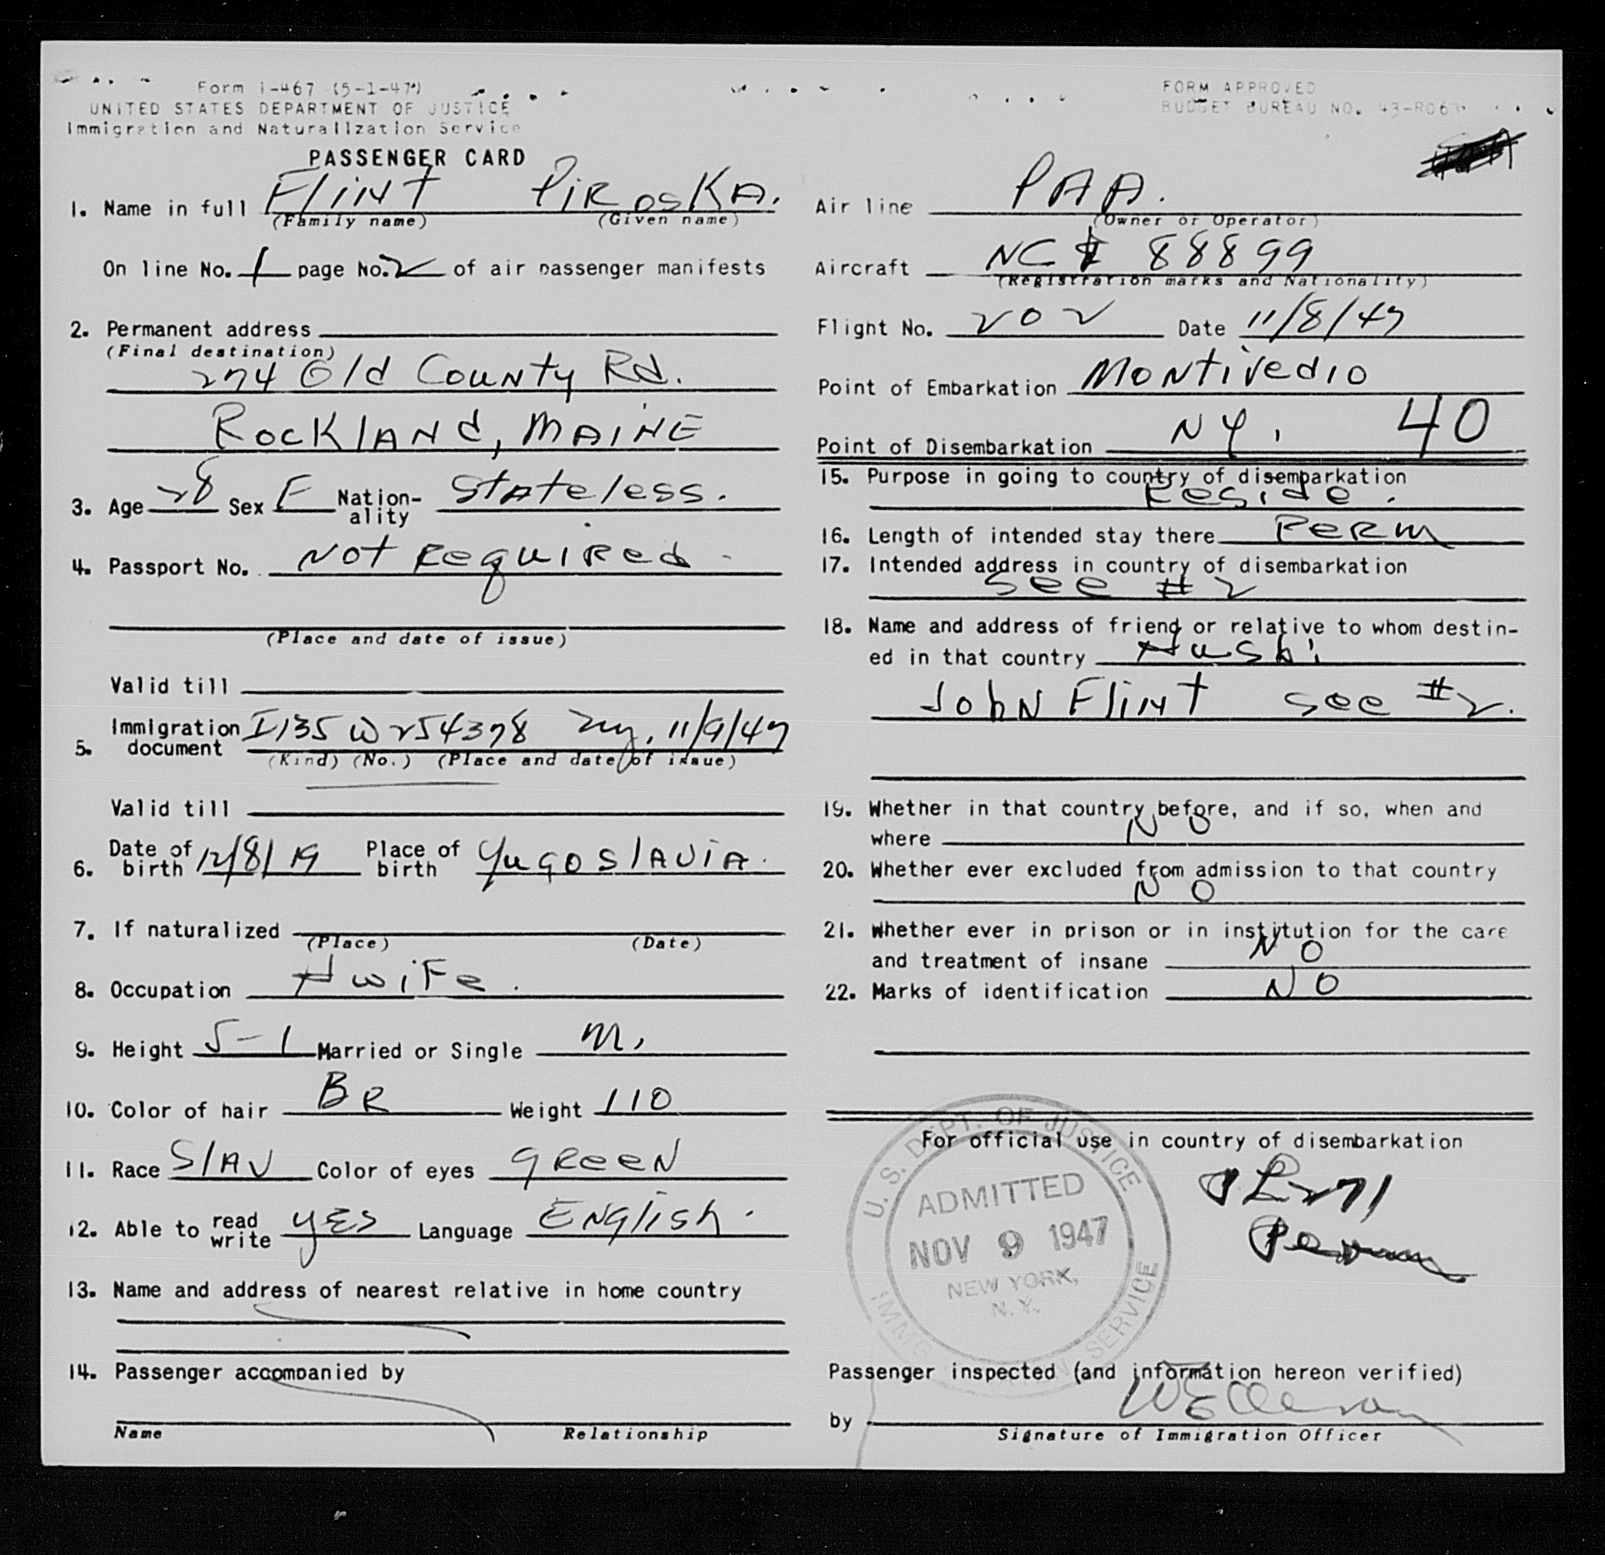 Form I-467 (5-1-47)
UNITED STATES DEPARTMENT OF JUSTICE
Immigration and Naturalization Service
PASSENGER CARD
1. Name in full Flint Piroska.
(Family name) (Given name)
On line No. 1 page No. 2 of air passenger manifests
2. Permanent address
(Final destination)
274 Old County Rd.
Rockland, Maine
3. Age 28 Sex F Nation-ality Stateless.
4. Passport No. Not Required
(Place and date of issue)
Valid till
5. Immigration document I135 W254378 NY, 11/9/47
(Kind) (No.) (Place and date of issue)
Valid till
6. Date of birth 12/8/19 Place of birth Yugoslavia.
7. If naturalized
(Place) (Date)
8. Occupation Hwife.
9. Height 5-1 Married or Single M.
10. Color of hair BR Weight 110
11. Race Slav Color of eyes green
12. Able to read write yes Language English.
13. Name and address of nearest relative in home country
14. Passenger accompanied by
Name Relationship
FORM APPROVED
BUDGET BUREAU NO.
Air line PAA.
(Owner or Operator)
Aircraft NC 88899
(Registration marks and Nationality)
Flight No. 202 Date 11/8/47
Point of Embarkation Montivedio
Point of Disembarkation NY. 40
15. Purpose in going to country of disembarkation
Reside.
16. Length of intended stay there Perm
17. Intended address in country of disembarkation
See #2
18. Name and address of friend or relative to whom destin-
ed in that country Husb:
John Flint see #2.
19. Whether in that country before, and if so, when and
where No
20. Whether ever excluded from admission to that country
No
21. Whether ever in prison or in institution for the care
and treatment of insane No
22. Marks of identification No
For official use in country of disembarkation
U. S. DEPT. OF JUSTICE
ADMITTED
NOV 9 1947
NEW YORK,
N.Y.
IMMIG SERVICE
Passenger inspected (and information hereon verified)
by
Signature of Immigration Officer